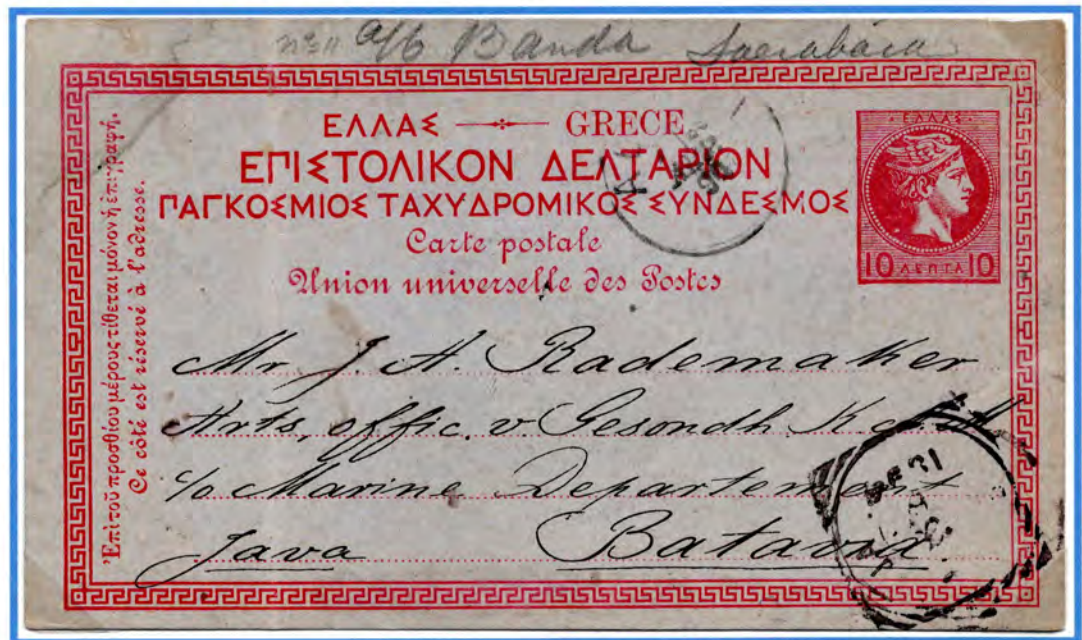 a/b Banda Soerabaia
ΕΛΛΑΣ GRECE
ΕΠΙΣΤΟΛΙΚΟΝ ΔΕΛΤΑΡΙΟΝ
ΠΑΓΚΟΣΜΙΟΣ ΤΑΧΥΔΡΟΜΙΚΟΣ ΣΥΝΔΕΣΜΟΣ
Carte postale
Union universelle des Postes
ΕΛΛΑΣ
10 ΛΕΠΤΑ 10
Ἐπὶ τοῦ προσθίου μέρους τίθεται μόνον ἡ ἐπιγραφή.
Ce côté est réservé à l'adresse.
Mr. J. A. Rademaker
Arts, offic. v. Gesondh
c/o Marine Departement
Java Batavia